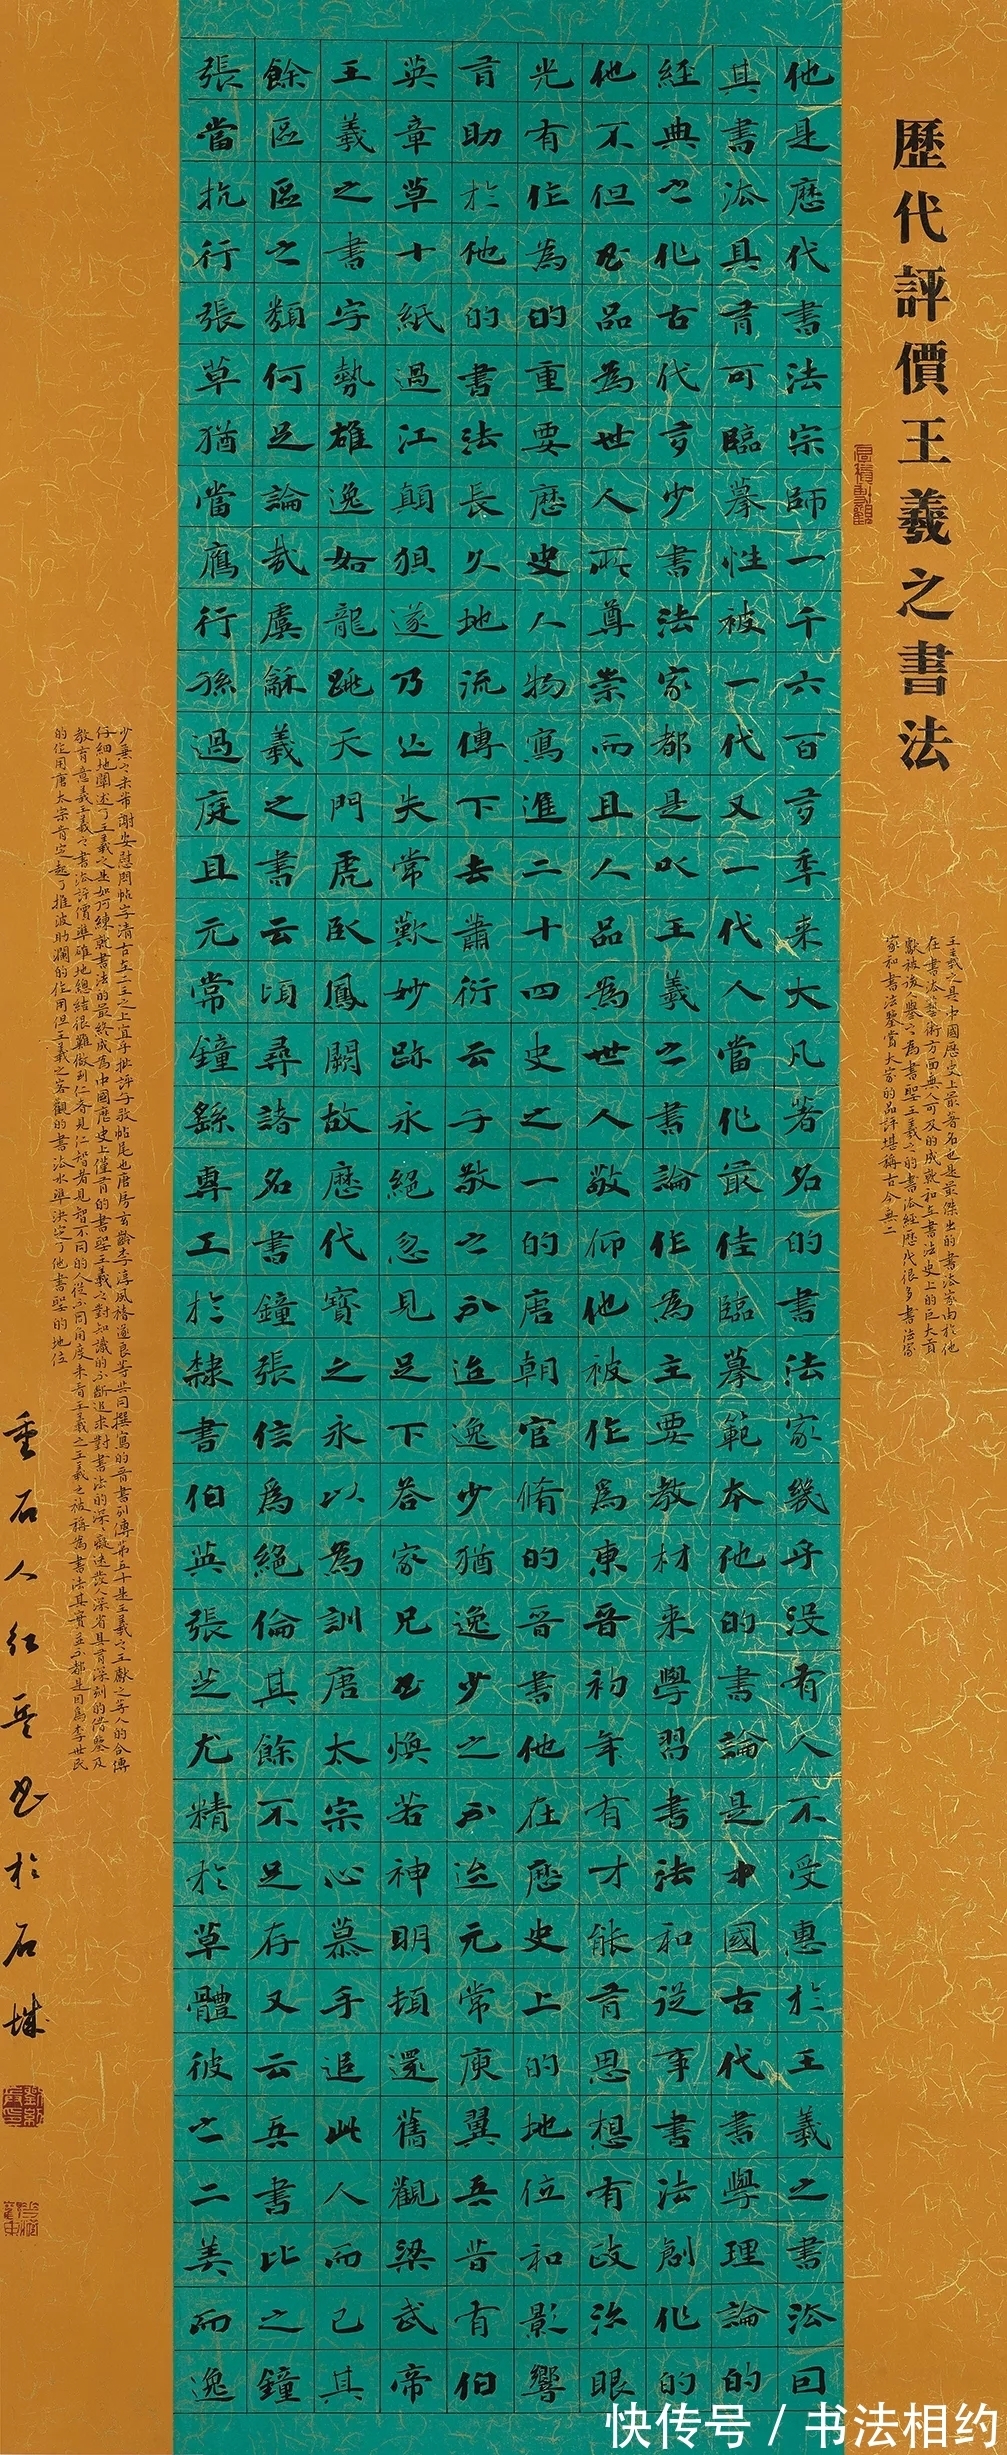 歷代評價王羲之書法
王羲之是中國歷史上最著名也是最傑出的書法家由於他
在書法藝術方面無人可及的成就和在書法史上的巨大貢
獻被後人譽之為書聖王羲之的書法經歷代很多書法家
家和書法鑒賞大家的品評堪稱古今無二
他是歷代書法宗師一千六百多年來大凡著名的書法家幾乎沒有人不受惠於王羲之書法因
其書法具有可臨摹性被一代又一代人當作最佳臨摹範本他的書論是中國古代書學理論的
經典之作古代多少書法家都是以王羲之書論作為主要教材來學習書法和從事書法創作的
他不但書品為世人所尊崇而且人品為世人敬仰他被作為東晉初年有才能有思想有政治眼
光有作為的重要歷史人物寫進二十四史之一的唐朝官脩的晉書他在歷史上的地位和影響
有助於他的書法長久地流傳下去蕭衍云子敬之不迨逸少猶逸少之不迨元常庾翼吾昔有伯
英章草十紙過江顛狽遂乃亡失常歎妙跡永絕忽見足下答家兄書煥若神明頓還舊觀梁武帝
王羲之書字勢雄逸如龍跳天門虎臥鳳闕故歷代寶之永以為訓唐太宗心慕手追此人而已其
餘區區之類何足論哉虞龢羲之書云頃尋諸名書鐘張信為絕倫其餘不足存又云吾書比之鐘
張當抗行張草猶當鴈行孫過庭且元常鐘繇專工於隸書伯英張芝尤精於草體彼之二美而逸
少兼之米芾謝安慰問帖字清古在二王之上宜乎批評子敬帖尾也唐房玄齡李淳風褚遂良等共同撰寫的晉書列傳第五十是王羲之王獻之等人的合傳
仔細地闡述了王羲之是如何練就書法的最終成為中國歷史上僅有的書聖王羲之對知識的不斷追求對書法的深深癡迷發人深省具有深刻的借鑒及
教育意義王羲之書法評價準確地總結很難做到仁者見仁智者見智不同的人從不同角度來看王羲之王羲之被稱為書法其實並不都是因為李世民
的作用唐太宗肯定起了推波助瀾的作用但王羲之客觀的書法水準決定了他書聖的地位
重石人紅兵書於石城
快传号 / 书法相约